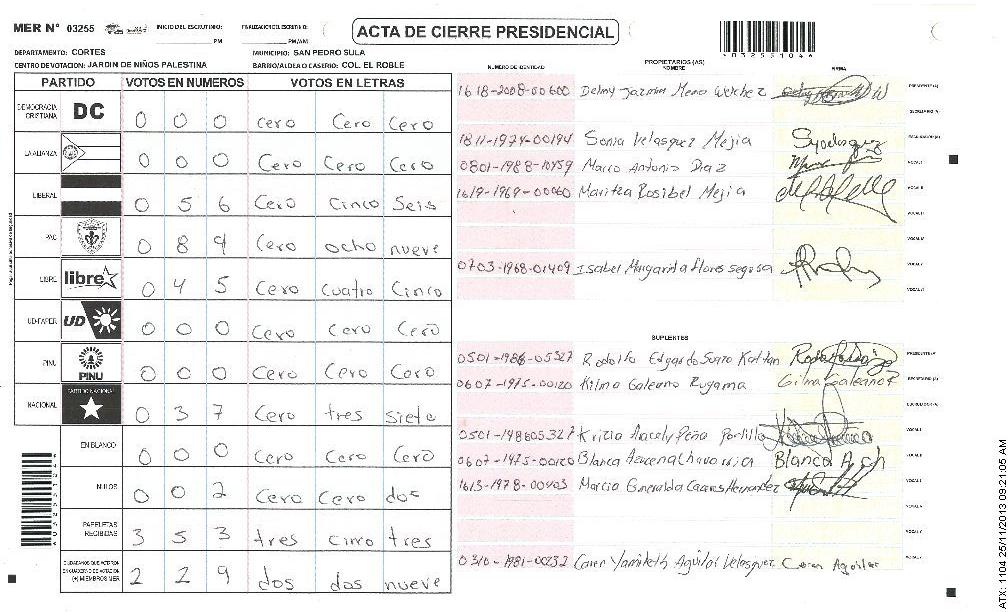 MER Nº 03255 INICIO DEL ESCRUTINIO: PM FINALIZACION DEL ESCRUTINIO: PM/AM
ACTA DE CIERRE PRESIDENCIAL
DEPARTAMENTO: CORTES MUNICIPIO: SAN PEDRO SULA
CENTRO DE VOTACION: JARDIN DE NIÑOS PALESTINA BARRIO/ALDEA O CASERIO: COL. EL ROBLE
PARTIDO VOTOS EN NUMEROS VOTOS EN LETRAS
DEMOCRACIA CRISTIANA DC 0 0 0 Cero Cero Cero
LA ALIANZA 0 0 0 Cero Cero Cero
LIBERAL 0 5 6 Cero Cinco Seis
PAC 0 8 9 Cero ocho nueve
LIBRE libre 0 4 5 Cero Cuatro Cinco
UD-FAPER UD 0 0 0 Cero Cero Cero
PINU PINU 0 0 0 Cero Cero Cero
NACIONAL PARTIDO NACIONAL 0 3 7 Cero tres siete
EN BLANCO 0 0 0 Cero Cero Cero
NULOS 0 0 2 Cero Cero dos
PAPELETAS RECIBIDAS 3 5 3 tres cinco tres
CIUDADANOS QUE VOTARON EN CUADERNO DE VOTACION (+) MIEMBROS MER 2 2 9 dos dos nueve
NUMERO DE IDENTIDAD PROPIETARIOS (AS) NOMBRE FIRMA
1618-2008-00600 Delmy Jazmin Mena Welchez PRESIDENTE (A)
SECRETARIO (A)
1811-1974-00194 Sonia Velasquez Mejia ESCRUTADOR (A)
0801-1988-10459 Marco Antonio Diaz VOCAL I
1619-1969-00060 Maritza Rosibel Mejia VOCAL II
VOCAL III
VOCAL IV
0703-1968-01409 Isabel Margarita Flores segosa VOCAL V
VOCAL VI
SUPLENTES
0501-1986-05327 Rodolfo Edgardo Kattan PRESIDENTE (A)
0607-1975-00120 Kilma Galeano Rugama Gilma Galeano R SECRETARIO (A)
ESCRUTADOR (A)
0501-198605327 Krizia Aracely Peña Portillo VOCAL I
0607-1975-00120 Blanca Azucena Chavarria Blanca A ch VOCAL II
1613-1978-00403 Marcia Esmeralda Caceres Hernandez VOCAL III
VOCAL IV
VOCAL V
0310-1981-00232 Caren Yamileth Aguilar Velasquez Caren Aguilar
ATX: 1104 25/11/2013 09:21:05 AM